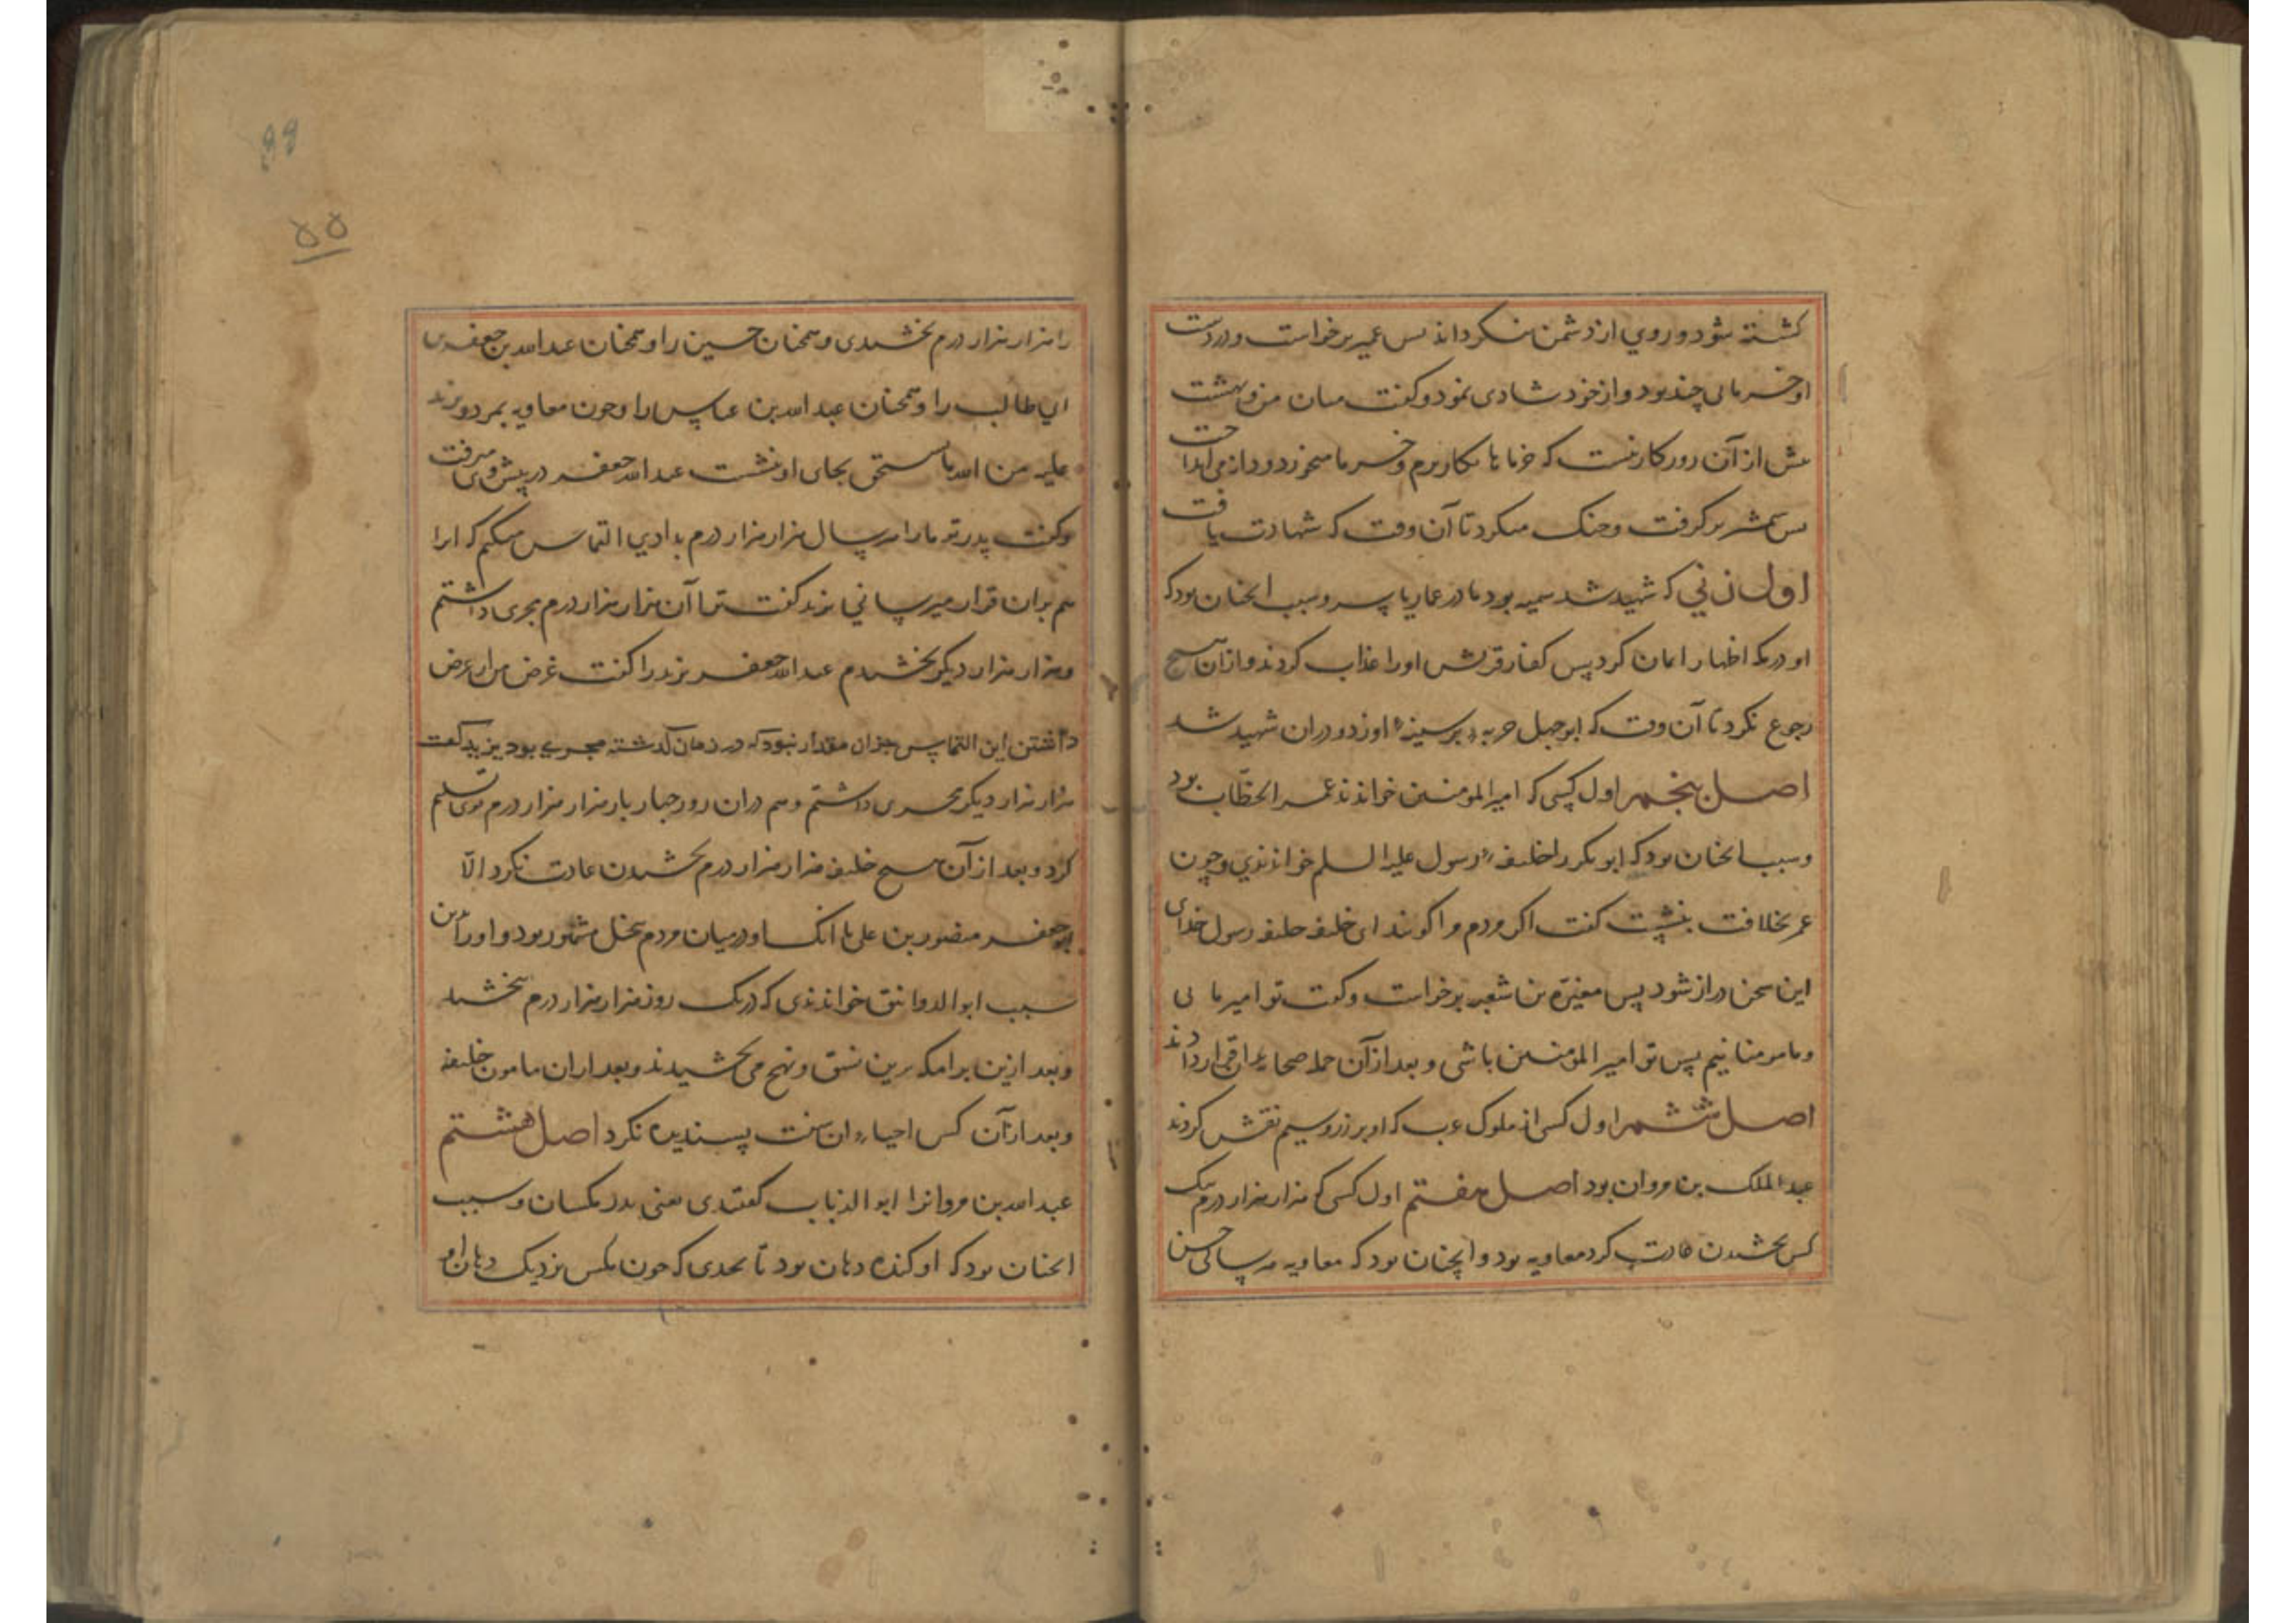 کشته شود و روی از دشمن نکرداند پس عمیر برخواست و در دست
او خرمایی چند بود و از خود شادی نمود و کفت میان من و بهشت
بیش از آن روزکار نیست که خرماها بکار برم و خرما میخورد و دور از می انداخت
پس شمشیر بر کرفت و جنک میکرد تا آن وقت که شهادت یافت
اول زنی که شهید شد سمیه بود مادر عمار یاسر و سبب انچنان بود که
او در مکه اظهار ایمان کرد پس کفار قریش او را عذاب کردند و از آن هیچ
رجوع نکرد تا آن وقت که ابوجهل حربه بر سینهٔ او زد و در آن شهید شد
اصل پنجم اول کسی که امیر المومنین خواندند عمر الخطاب بود
و سبب انچنان بود که ابو بکر را خلیفهٔ رسول علیه السلم خواندندی و چون
عمر بخلافت بنشست کفت اکر مردم مرا کویند ای خلیفه خلیفه رسول خدای
این سخن دراز شود پس مغیره بن شعبه برخواست و کفت تو امیر مایی
و ما مومنانیم پس تو امیر المومنین باشی و بعد از آن جمله صحابه بر آن قرار دادند
اصل ششم اول کسی از ملوک عرب که او بر زر و سیم نقش کردند
عبد الملک بن مروان بود اصل هفتم اول کسی که هزار هزار درم بیک
کس بخشیدن عادت کرد معاویه بود و انچنان بود که معاویه هر سالی حسن
را هزار هزار درم بخشیدی و همچنان حسین را و همچنان عبد الله بن جعفر بن
ابی طالب را و همچنان عبد الله بن عباس را و چون معاویه بمرد و یزید
علیه من الله ما یستحق بجای او نشست عبد الله جعفر در پیش وی میرفت
و کفت پدر تو ما را هر سال هزار هزار درم بدادی التماس میکنم که انرا
هم بران قرار میرسانی یزید کفت ترا آن هزار هزار درم مجری داشتم
و هزار هزار دیکر بخشیدم عبد الله جعفر یزید را کفت غرض من از عرض
داشتن این التماس جز آن مقدار نبود که در زمان گذشته مجری بود یزید گفت
هزار هزار دیکر مجری داشتم و هم در آن روز چهار بار هزار هزار درم بوی تسلیم
کرد و بعد از آن هیچ خلیفه هزار هزار درم بخشیدن عادت نکرد الا
بوجعفر منصور بن علی با انک او در میان مردم ببخل مشهور بود و او را بدین
سبب ابو الدوانیق خواندندی که در یک روز هزار هزار درم بخشید
و بعد ازین برامکه برین نسق و نهج می بخشیدند و بعد از ان مامون خلیفه
و بعد از آن کس احیاء ان سنت پسندیده نکرد اصل هشتم
عبد الله بن مروانرا ابو الذباب کفتندی یعنی پدر مکسان و سبب
انچنان بود که او کنده دهان بود تا بحدی که چون مکس نزدیک دهان او
۵۵